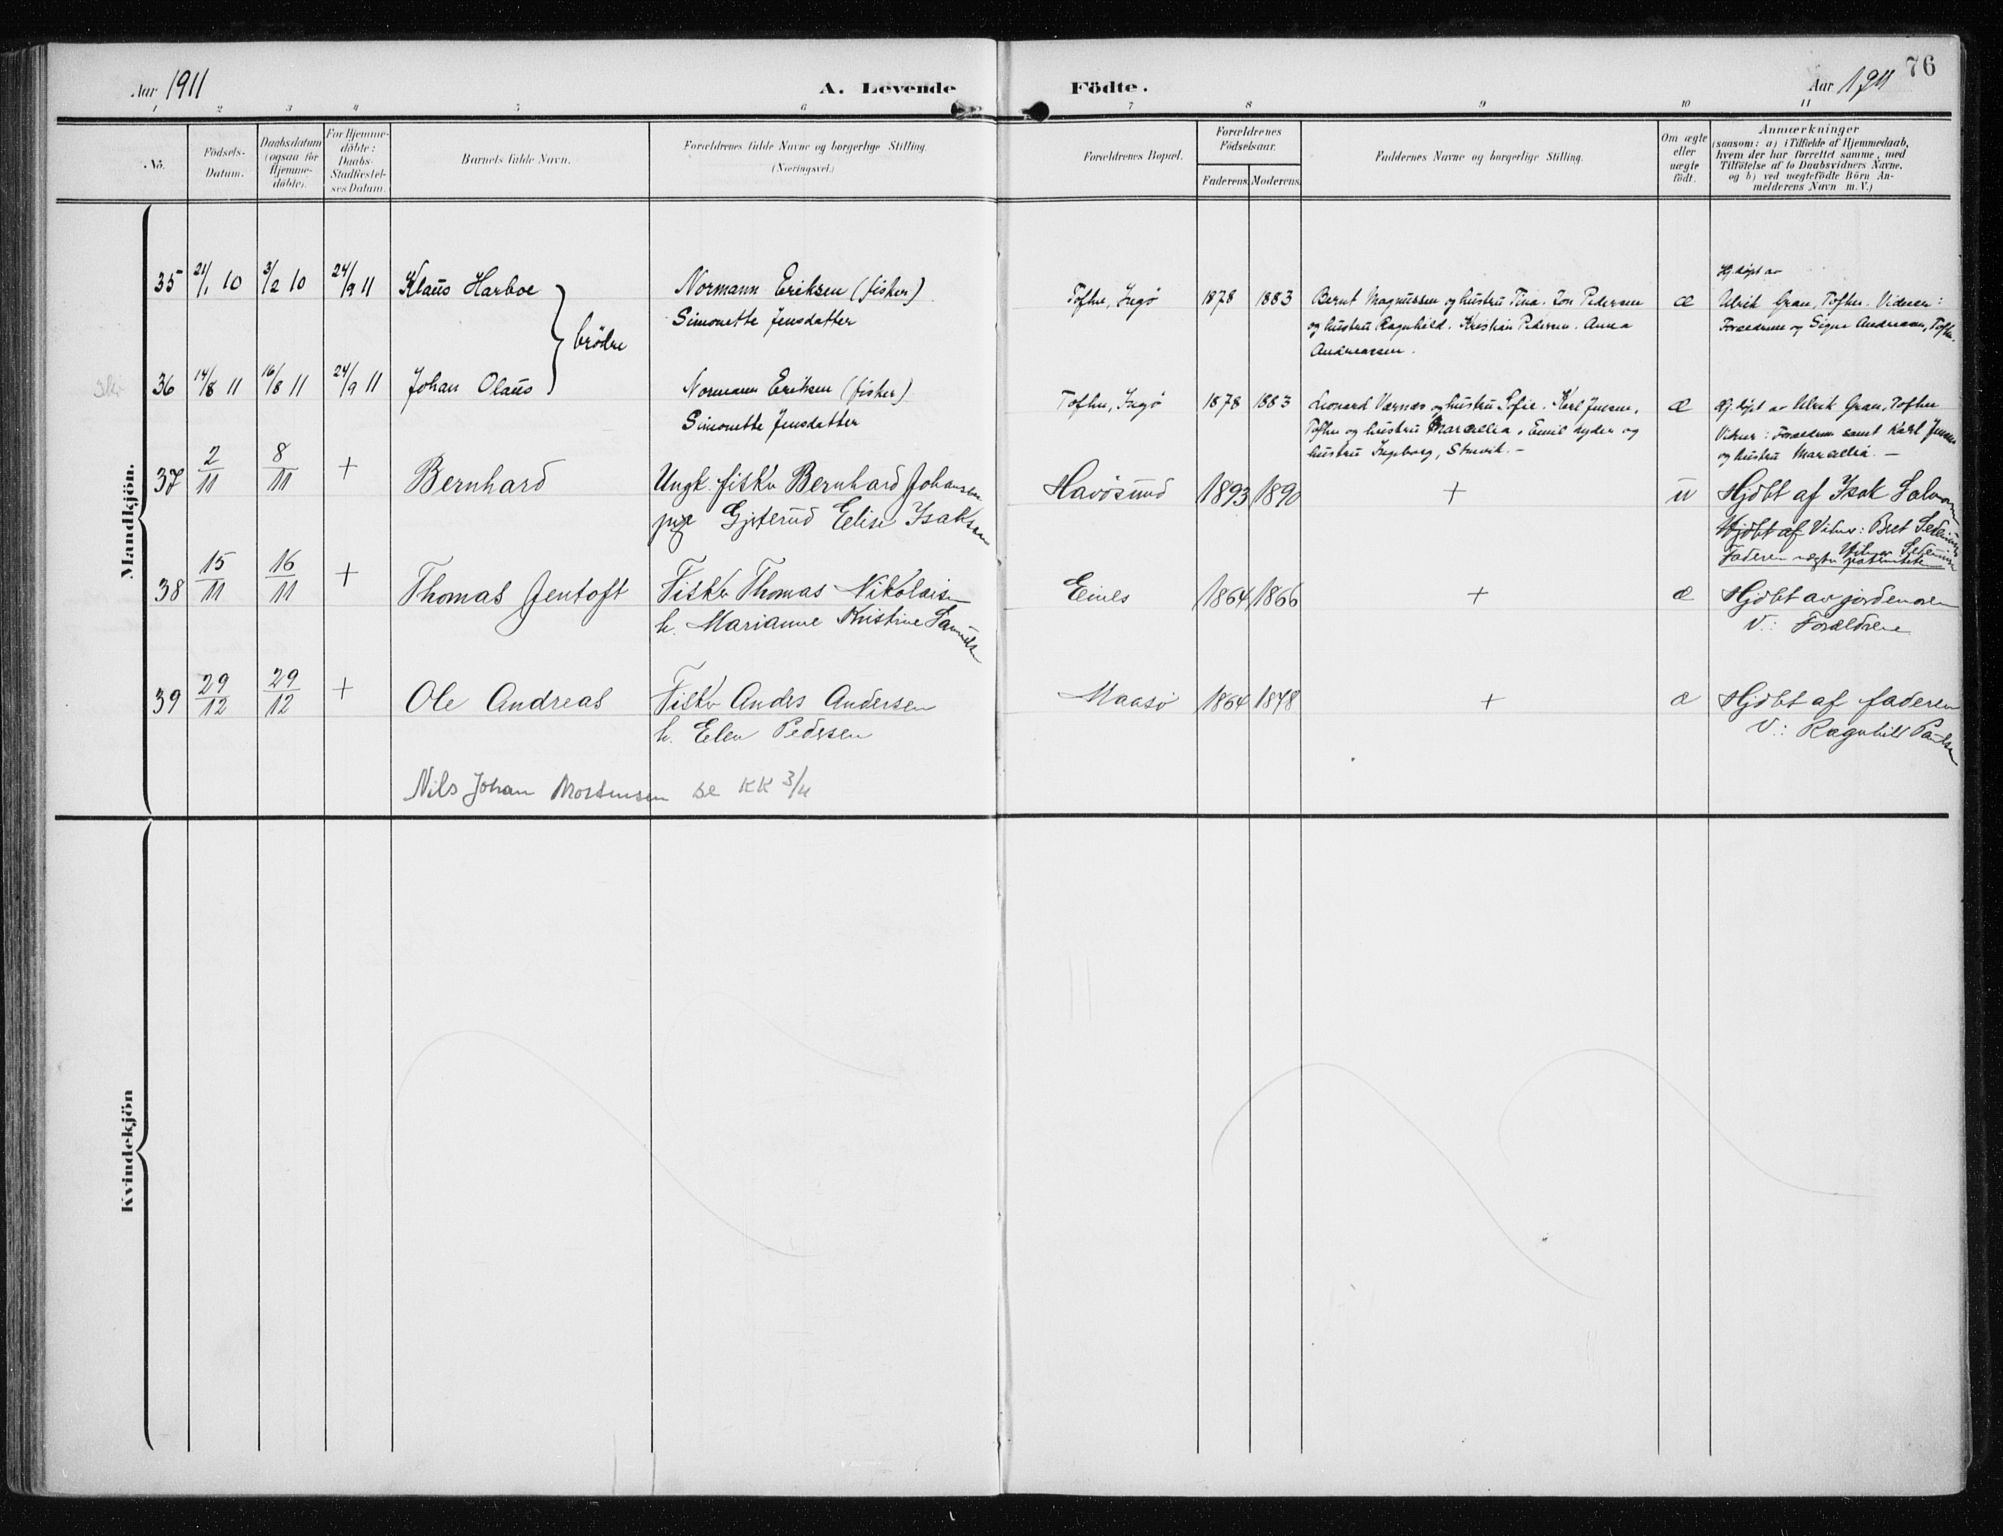 76
Aar 1911
A. Levende
Födte.
Aar 1911
1 2 3 4 5 6 7 8 9 10 11
No.
Födsels-
Datum.
Daabsdatum
(ogsaa for
Hjemme-
döbte).
For Hjemme-
döbte:
Daabs-
Stadfæstel-
ses Datum.
Barnets fulde Navn.
Forældrenes fulde Navne og borgerlige Stilling.
(Næringsvei.)
Forældrenes Bopæl.
Forældrenes
Födselsaar.
Faderens. Moderens.
Faddernes Navne og borgerlige Stilling.
Om ægte
eller
uægte
födt.
Anmærkninger
(saasom: a) i Tilfælde af Hjemmedaab,
hvem der har forrettet samme, med
Tilföielse af to Daabsvidners Navne.
og b) ved uægtefödte Börn An-
melderens Navn m. V.)
Mandkjön.
35 21/1 10 3/2 10 24/9 11 Klaus Harboe
Normann Eriksen (fisker)
Simonette Jensdatter
Tofhn, Ingö 1878 1883
Bernt Magnussen og hustru Tina. Jon Pedersen
og hustru Ragnhild. Kristian Pedersen. Anna
Andreassen.
æ
Hj. döpt av
Ulrik Gran, Tofhn. Vidner:
Forældrene og Signe Andreasen, Tofhn.
brödre
36 14/8 11 16/8 11 24/9 11 Johan Olaus
Normann Eriksen (fisker)
Simonette Jensdatter
Tofhn, Ingö 1878 1883
Leonard Værnæs og hustru Sofie. Karl Jensen,
Tofhn og hustru Marcelia. Emil Ryder og
hustru Ingeborg, Struvik. -
æ
Hj. döpt av Ulrik Gran, Tofhn
Vidner: Forældrene samt Karl Jensen
og hustru Marcelia. -
37 2/11 8/11 + Bernhard
Ungk. fisker Bernhard Johansen
pige Gjeterud Elise Isaksen
Havösund 1893 1890 + u
Hjdbt af Isak Salomon
Hjdbt af Vidner: Bret
Faderen negter paterniteten
38 15/11 16/11 + Thomas Jentoft
Fisker Thomas Nikolaisen
h. Marianne Kristine Samuels
Eines 1864 1866 + æ
Hjdbt av jordemoren
V.: Forældrene
39 29/12 29/12 + Ole Andreas
Fisker Andes Andersen
h. Elen Pedersen
Maasö 1864 1878 + æ
Hjdbt af faderen
V.: Ragnhild Paulsen
Nils Johan Mortensen se KK 3/11
Kvindekjön